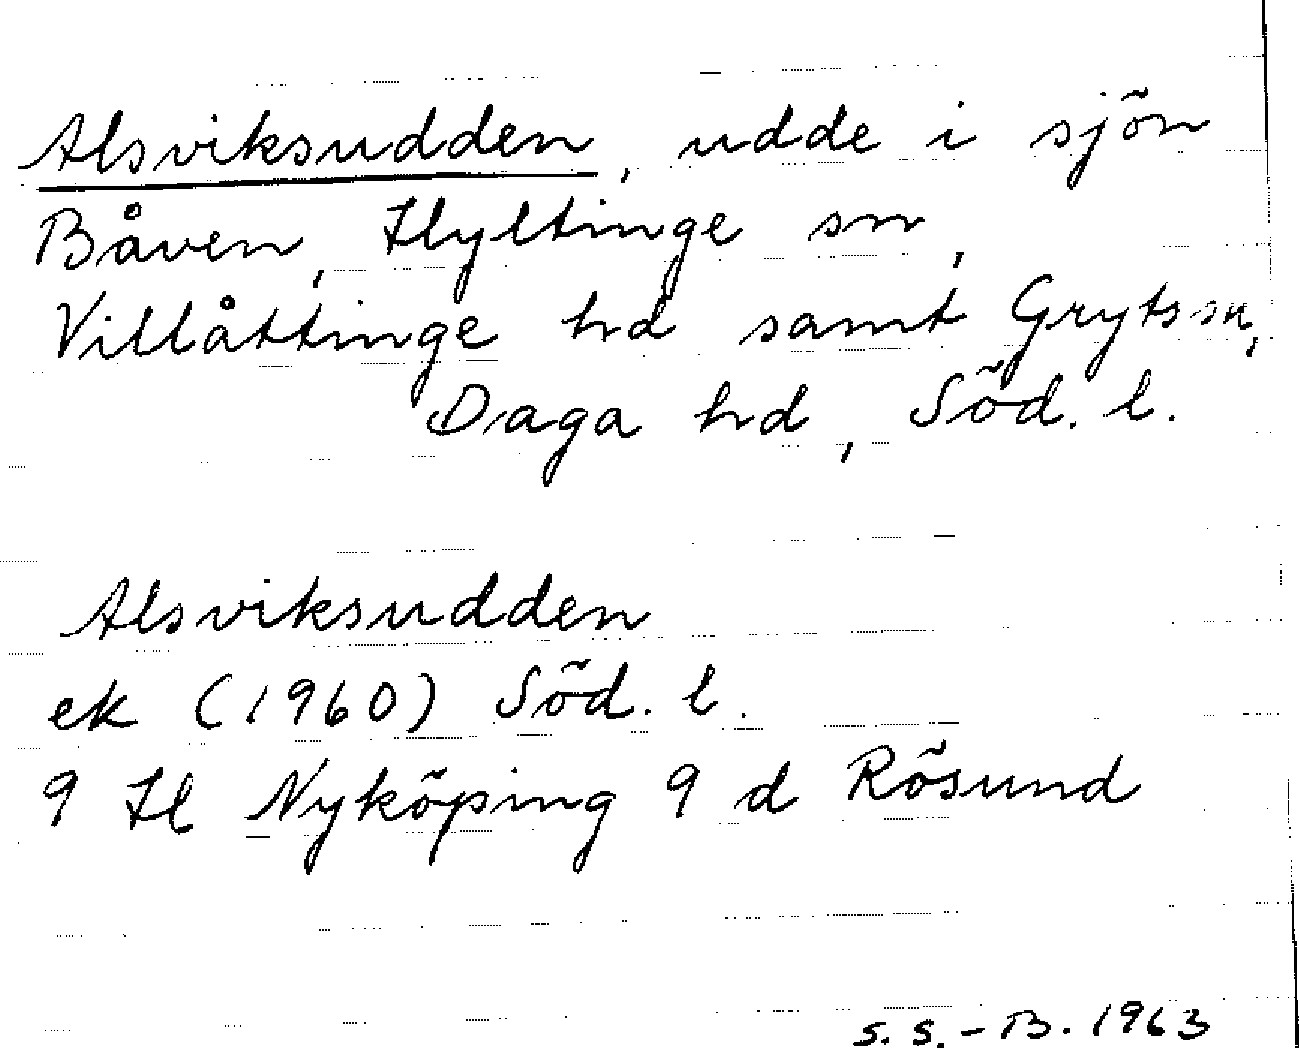 Alsviksudden, udde i sjön
Båven, Hyltinge sn,
Villåttinge hd samt Gryts sn,
Daga hd, Söd. l.
Alsviksudden
ek (1960) Söd. l.
9 H Nyköping 9 d Rösund
S. S.-B. 1963